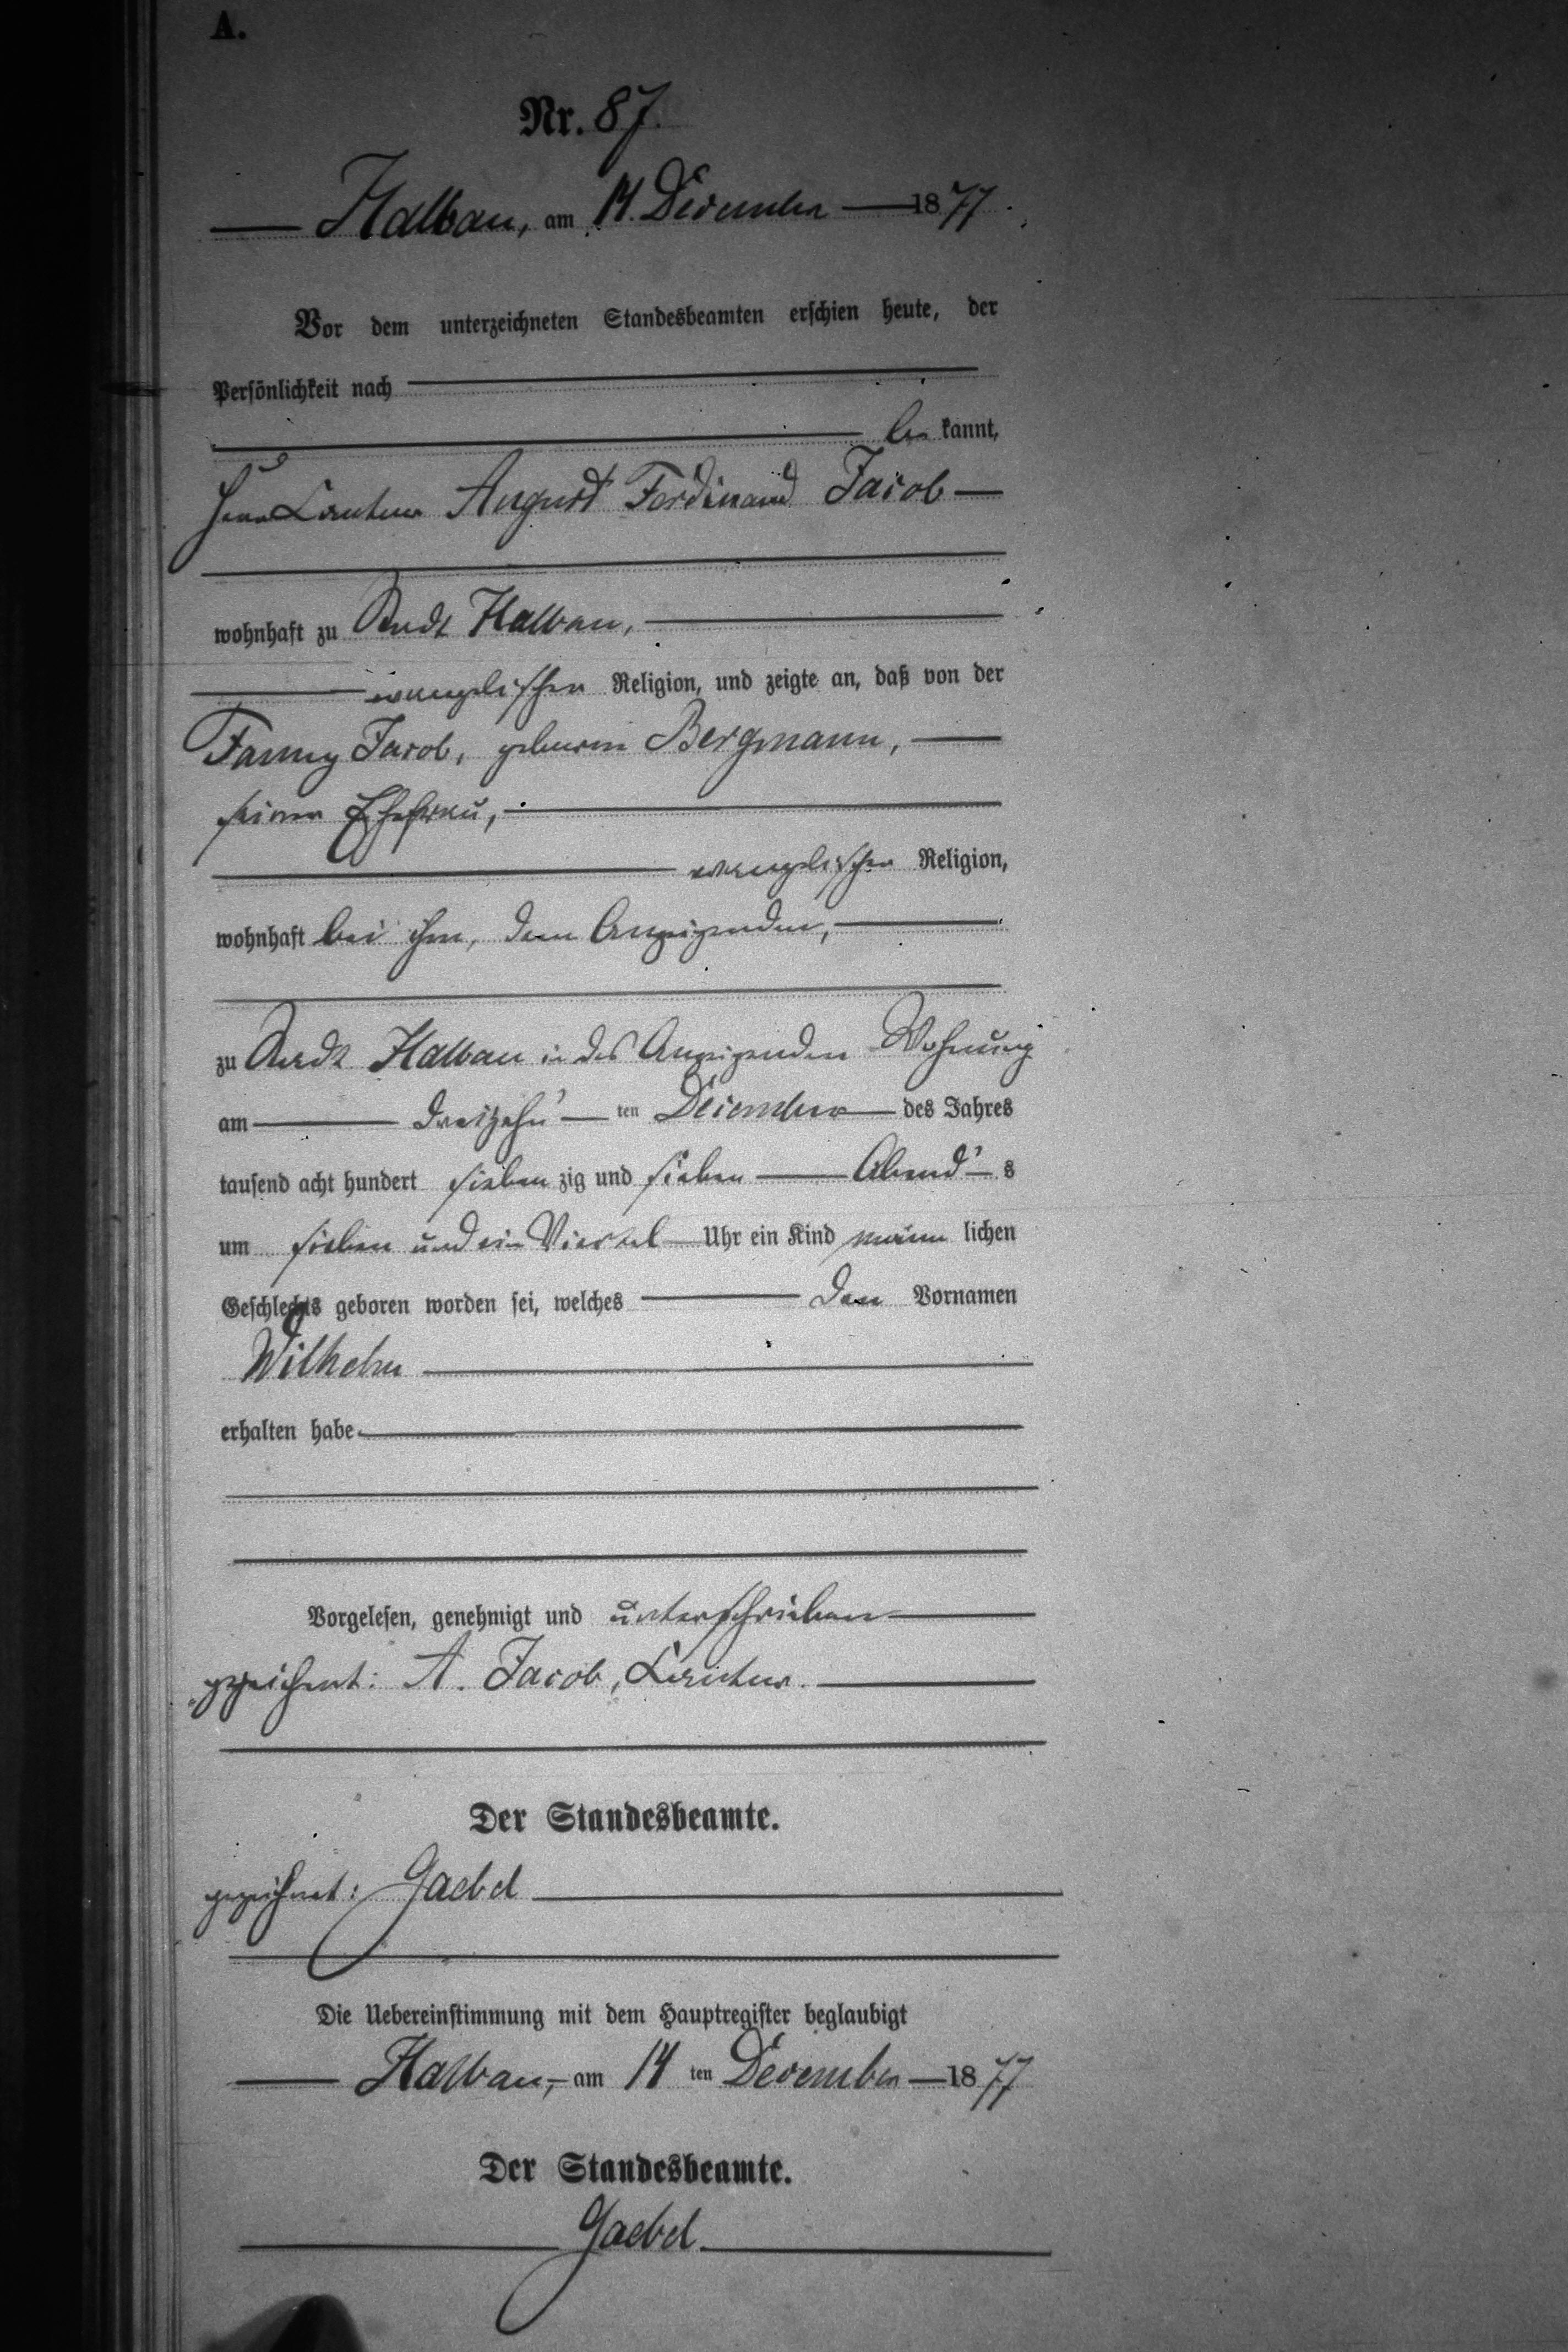 A.
Nr. 87.
Halbau, am 14. December 1877.
Vor dem unterzeichneten Standesbeamten erschien heute, der
Persönlichkeit nach
be kannt,
Herr Cantor August Ferdinand Jacob
wohnhaft zu Stadt Halbau,
evangelischer Religion, und zeigte an, daß von der
Fanny Jacob, geborene Bergmann,
seiner Ehefrau,
evangelischer Religion,
wohnhaft bei ihm, dem Anzeigenden,
zu Stadt Halbau in des Anzeigenden Wohnung
am dreizehn ten December des Jahres
tausend acht hundert sieben zig und sieben Abend s
um sieben und ein Viertel Uhr ein Kind männ lichen
Geschlechts geboren worden sei, welches den Vornamen
Wilhelm
erhalten habe
Vorgelesen, genehmigt und unterschrieben
gezeichnet: A. Jacob, Cantor.
Der Standesbeamte.
gezeichnet: Gaebel
Die Uebereinstimmung mit dem Hauptregister beglaubigt
Halbau, am 14 ten December 1877
Der Standesbeamte.
Gaebel.